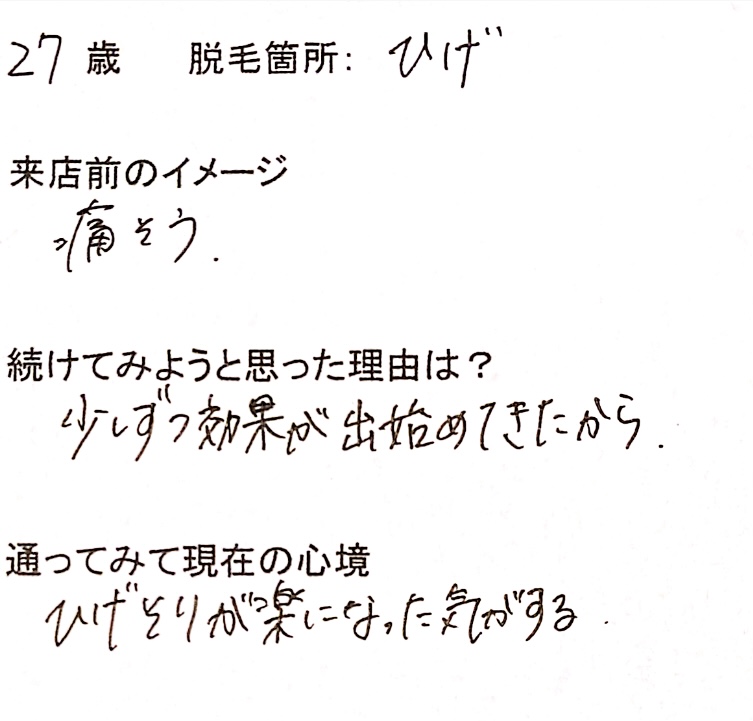 27 歳 脱毛箇所: ひげ
来店前のイメージ
痛そう.
続けてみようと思った理由は？
少しずつ効果が出始めてきたから.
通ってみて現在の心境
ひげそりが楽になった気がする.